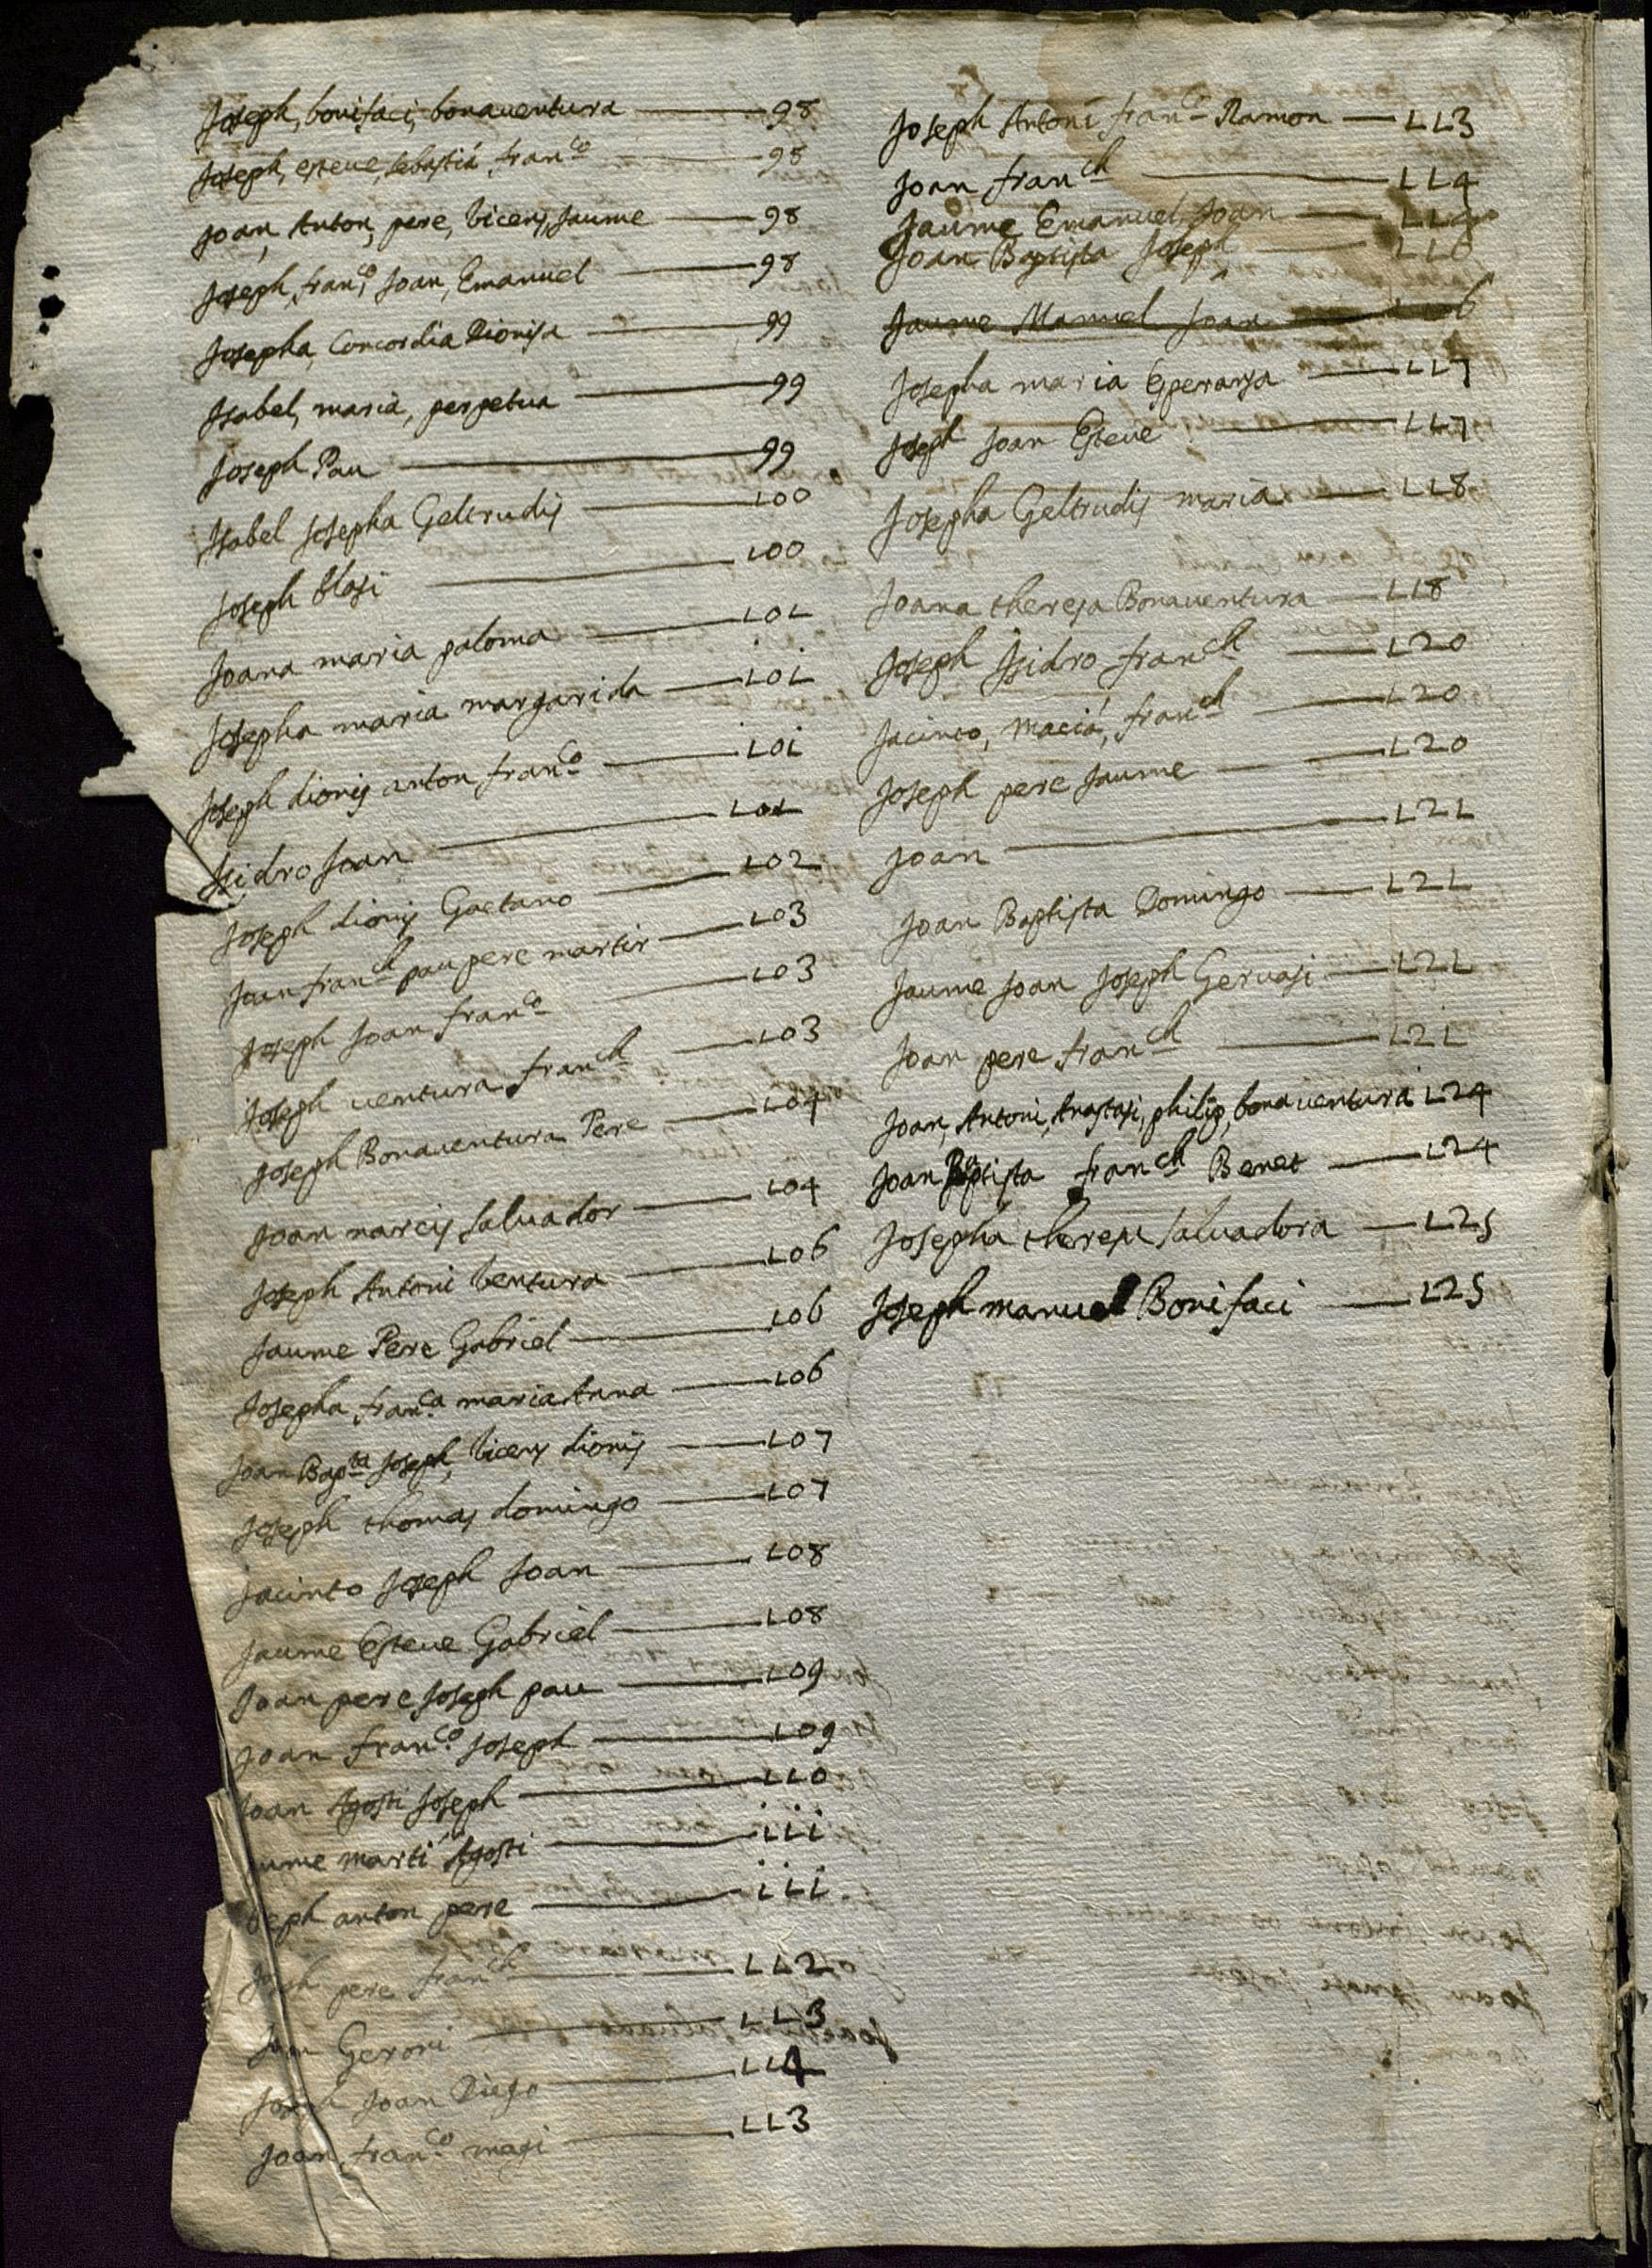 Joseph, bonifaci, bonaventura — 98
Joseph, esteve, sebastiá, fran.co — 98
Joan, Anton, pere, vicens, Jaume — 98
Joseph, fran.co, Joan, Emanuel — 98
Josepha, Concordia Dionisa — 99
Isabel, maria, perpetua — 99
Joseph Pau — 99
Isabel Josepha Geltrudis — 100
Joseph blasi — 100
Joana maria paloma — 101
Josepha maria margarida — 101
Joseph dionis anton fran.co — 101
Isidro Joan — 101
Joseph dionis Gaetano — 102
Joan fran.ch pau pere martir — 103
Joseph Joan fran.co — 103
Joseph ventura fran.ch — 103
Joseph Bonaventura Pere — 104
Joan narcis salvador — 104
Joseph Antoni ventura — 106
Jaume Pere Gabriel — 106
Josepha fran.ca maria Anna — 106
Joan Bap.ta Joseph, vicens dionis — 107
Joseph thomas domingo — 107
Jacinto Joseph Joan — 108
Jaume Esteve Gabriel — 108
Joan pere Joseph pau — 109
Joan fran.co Joseph — 109
Joan Agosti Joseph — 110
aume marti Agosti — 111
seph anton pere — 111
Joseph pere fran.ch — 112
Joan Geroni — 113
Joseph Joan Diego — 114
Joan, fran.co magi — 113
Joseph Antoni fran.co Ramon — 113
Joan fran.ch — 114
Jaume Emanuel Joan — 114
Joan Baptista Joseph — 116
Jaume Manuel Joan
Josepha maria Esperansa — 117
Joseph Joan Esteve — 117
Josepha Geltrudis maria — 118
Joana theresa Bonaventura — 118
Joseph Isidro fran.ch — 120
Jacinto, maciá, fran.ch — 120
Joseph pere Jaume — 120
Joan — 121
Joan Baptista Domingo — 121
Jaume Joan Joseph Gervasi — 121
Joan pere fran.ch — 121
Joan, Antoni, Anastasi, philip, bonaventura 124
Joan Baptista fran.ch Benet — 124
Josepha theresa salvadora — 125
Joseph manuel Bonifaci — 125